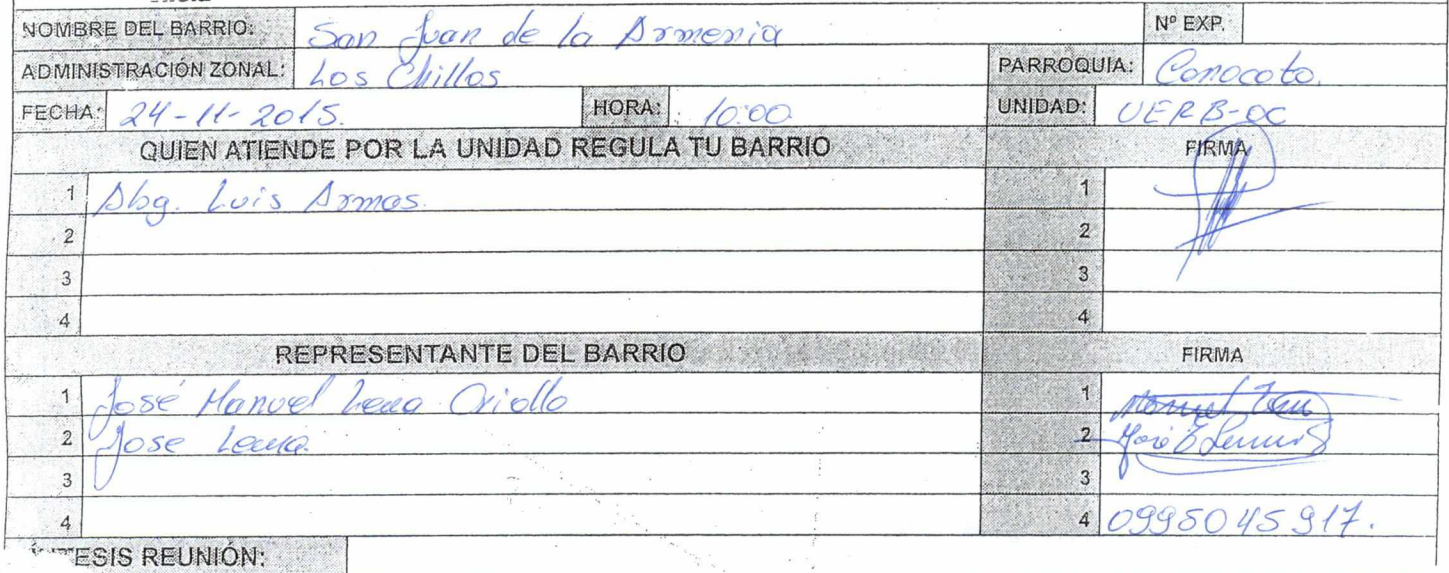 NOMBRE DEL BARRIO: San Juan de la Armenia Nº EXP.
ADMINISTRACIÓN ZONAL: Los Chillos PARROQUIA: Conocoto.
FECHA: 24-11-2015. HORA: 10:00 UNIDAD: UERB-OC
QUIEN ATIENDE POR LA UNIDAD REGULA TU BARRIO FIRMA
1 Abg. Luis Armas. 1
2 2
3 3
4 4
REPRESENTANTE DEL BARRIO FIRMA
1 José Manuel Criollo 1 Manuel
2 Jose Lema. 2 José
3 3
4 4 0995045917.
TESIS REUNIÓN: